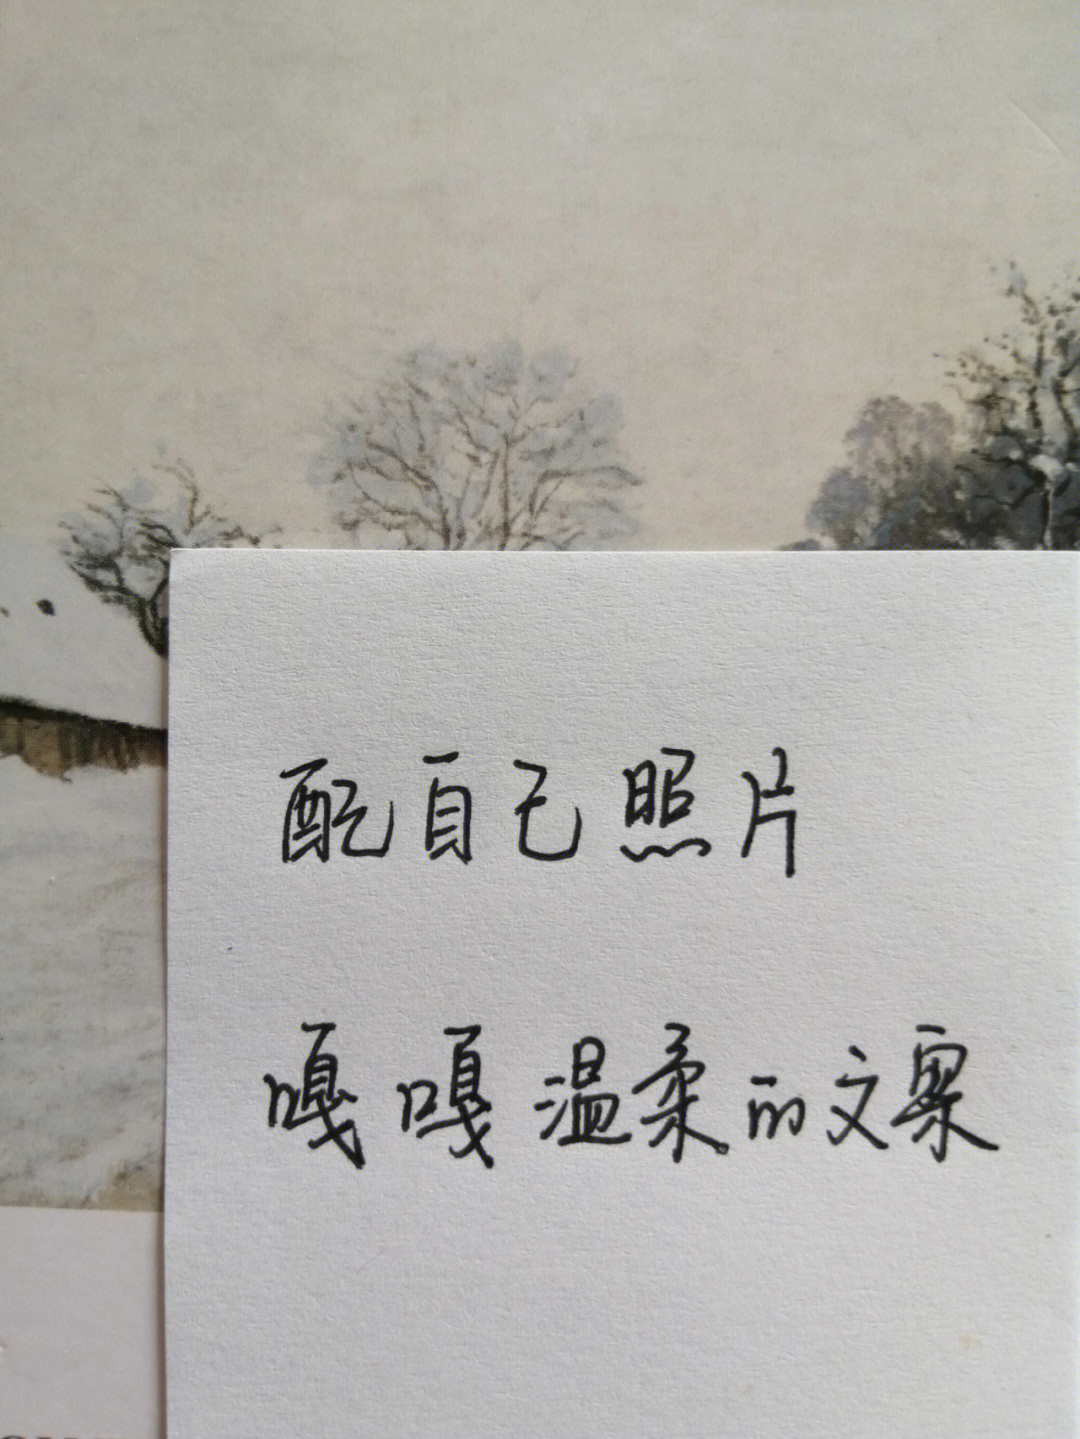 配自己照片
嘎嘎温柔的文案